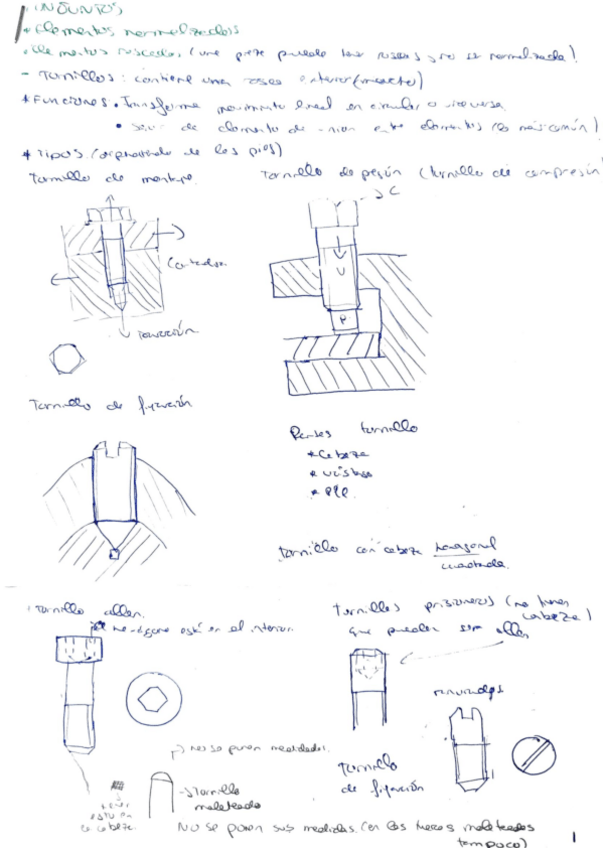 * Elementos normalizados
- Elementos roscados (una pieza puede tener roscas y no ser normalizada)
- Tornillos: contiene una rosca exterior (macho)
* Funciones • Transforma movimiento lineal en circular o viceversa
• Servir de elemento de unión entre elementos (lo más común)
* Tipos (dependiendo de los pies)
Tornillo de montaje
Tornillo de presión (tornillo de compresión)
C
Cortadura
V
P
Tracción
Tornillo de fijación
Partes tornillo
* Cabeza
* Vástago
* Pie
Tornillo con cabeza hexagonal
cuadrada
Tornillo allen
el hexágono está en el interior
Tornillos prisioneros (no tienen
cabeza)
que pueden ser allen
ranurados
no se ponen medidas
Tornillo
moleteado
Tornillo
de fijación
cabeza
No se ponen sus medidas (en las tuercas moleteadas
tampoco)
1